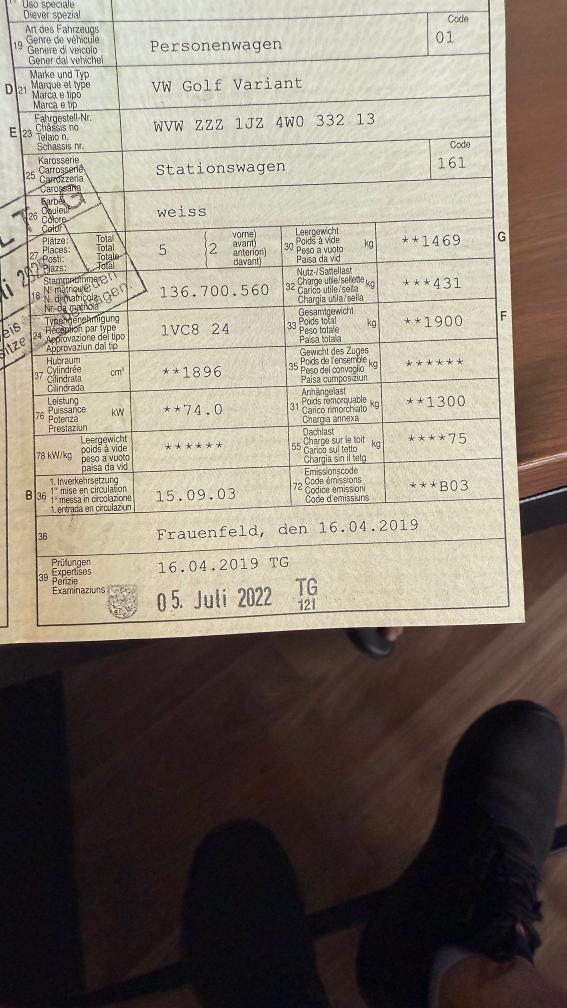 Uso speciale
Diever spezial
Code
19 Art des Fahrzeugs
Genre de véhicule
Genere di veicolo
Gener dal vehichel
Personenwagen 01
D 21 Marke und Typ
Marque et type
Marca e tipo
Marca e tip
VW Golf Variant
E 23 Fahrgestell-Nr.
Châssis no
Telaio n.
Schassis nr.
WVW ZZZ 1JZ 4W0 332 13
Code
25 Karosserie
Carrosserie
Carrozzeria
Carossaria
Stationswagen 161
26 Farbe
Couleur
Colore
Colur
weiss
27 Plätze: Total
Places: Total
Posti: Totale
Plazs: Total
5 (2 vorne)
avant)
anteriori)
davant)
30 Leergewicht
Poids à vide kg
Peso a vuoto
Paisa da vid
**1469 G
18 Stammnummer
N° matricule
N. di matricola
Nr. da matricla
136.700.560
32 Nutz-/Sattellast
Charge utile/sellette kg
Carico utile/sella
Chargia utila/sella
***431
24 Typengenehmigung
Réception par type
Approvazione del tipo
Approvaziun dal tip
1VC8 24
33 Gesamtgewicht
Poids total kg
Peso totale
Paisa totala
**1900 F
37 Hubraum
Cylindrée cm³
Cilindrata
Cilindrada
**1896
35 Gewicht des Zuges
Poids de l'ensemble kg
Peso del convoglio
Paisa cumposiziun
******
76 Leistung
Puissance kW
Potenza
Prestaziun
**74.0
31 Anhängelast
Poids remorquable kg
Carico rimorchiato
Chargia annexa
**1300
78 kW/kg Leergewicht
poids à vide
peso a vuoto
paisa da vid
******
55 Dachlast
Charge sur le toit kg
Carico sul tetto
Chargia sin il tetg
****75
B 36 1. Inverkehrsetzung
1re mise en circulation
1a messa in circolazione
1. entrada en circulaziun
15.09.03
72 Emissionscode
Code émissions
Codice emissioni
Code d'emissiuns
***B03
38 Frauenfeld, den 16.04.2019
39 Prüfungen
Expertises
Perizie
Examinaziuns
16.04.2019 TG
05. Juli 2022 TG
121